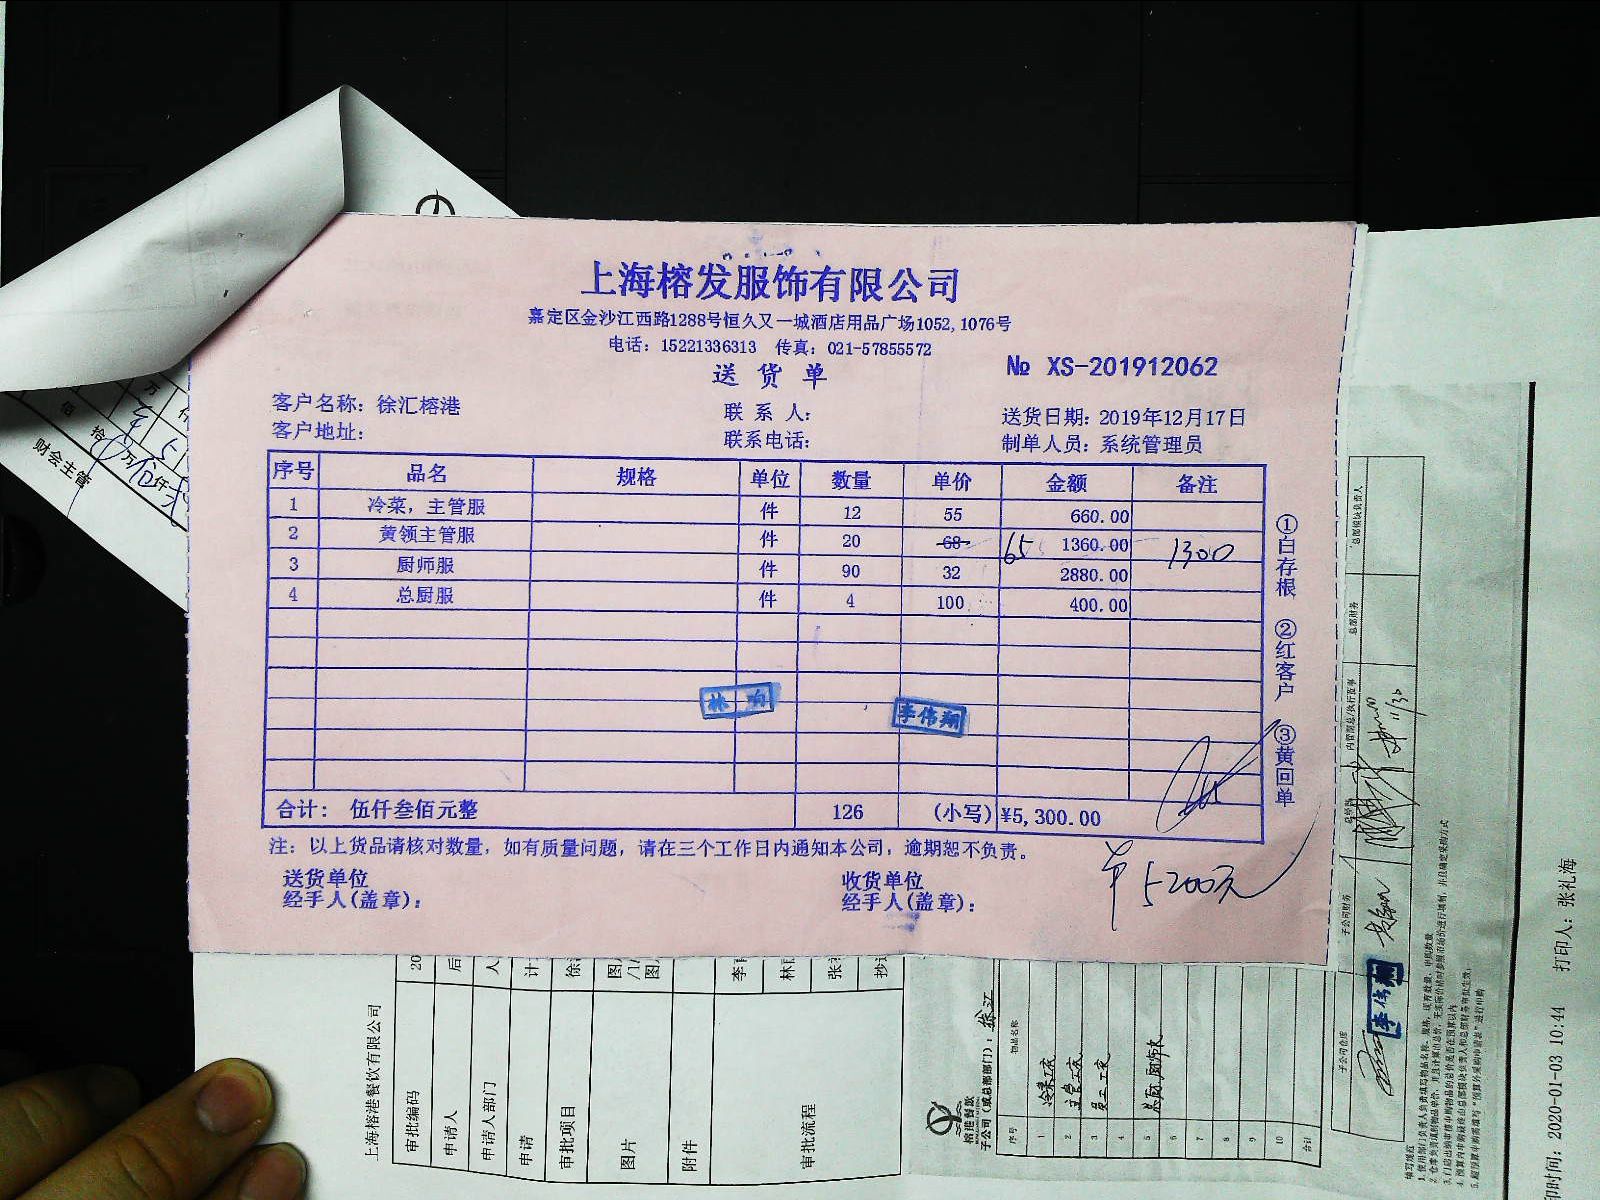 上海榕发服饰有限公司
嘉定区金沙江西路1288号恒久又一城酒店用品广场1052,1076号
电话：15221336313 传真：021-57855572
送货单
№ XS-201912062
客户名称：徐汇榕港 联系人： 送货日期：2019年12月17日
客户地址： 联系电话： 制单人员：系统管理员
序号 品名 规格 单位 数量 单价 金额 备注
1 冷菜，主管服 件 12 55 660.00
2 黄领主管服 件 20 68 65 1360.00 1300
3 厨师服 件 90 32 2880.00
4 总厨服 件 4 100 400.00
林响
李伟翔
合计： 伍仟叁佰元整 126 (小写) ¥5,300.00
①白存根 ②红客户 ③黄回单
注：以上货品请核对数量，如有质量问题，请在三个工作日内通知本公司，逾期恕不负责。
送货单位 收货单位
经手人(盖章)： 经手人(盖章)：
5200元
财会主管
上海榕港餐饮有限公司
审批编码 20
申请人 后
申请人部门 人
申请 计
审批项目 徐
图片 图/1/图
附件
审批流程 李 林 张 抄
榕港餐饮
子公司（或总部部门）：徐汇
序号 物品名称
1 冷菜工衣
2 主管工衣
3 员工工衣
4
5 总厨厨师衣
6
7
8
9
10
合计
子公司仓库 子公司财务 总经理 总部财务 总部模块负责人
李伟翔
印时间：2020-01-03 10:44 打印人：张礼海